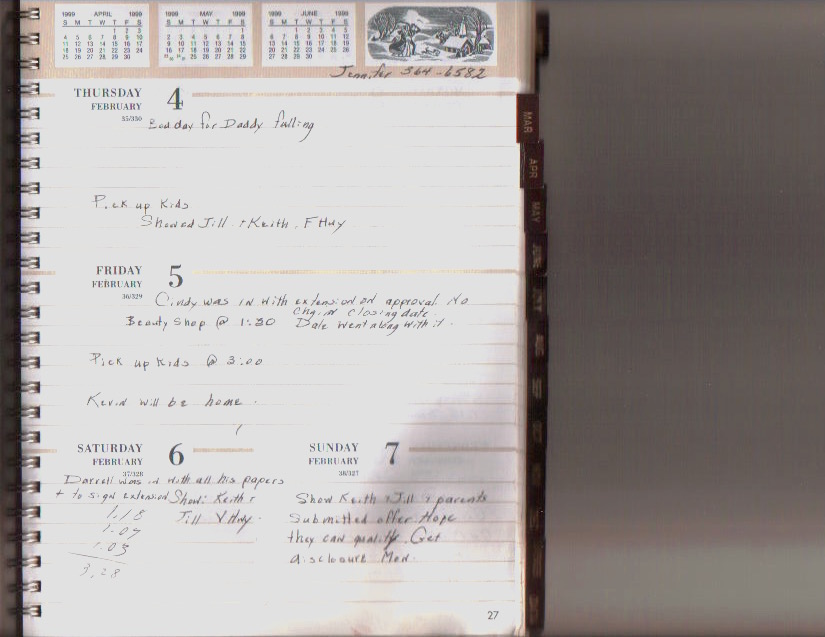 1999 APRIL 1999
S M T W T F S
1 2 3
4 5 6 7 8 9 10
11 12 13 14 15 16 17
18 19 20 21 22 23 24
25 26 27 28 29 30
1999 MAY 1999
S M T W T F S
1
2 3 4 5 6 7 8
9 10 11 12 13 14 15
16 17 18 19 20 21 22
23/30 24/31 25 26 27 28 29
1999 JUNE 1999
S M T W T F S
1 2 3 4 5
6 7 8 9 10 11 12
13 14 15 16 17 18 19
20 21 22 23 24 25 26
27 28 29 30
Jennifer 364-6582
THURSDAY 4
FEBRUARY
35/330
Bad day for Daddy falling
Pick up Kids
Showed Jill + Keith, F Hwy
FRIDAY 5
FEBRUARY
36/329
Cindy was in with extension on approval. No
chg. in closing date.
Beauty Shop @ 1:30 Dale went along with it.
Pick up Kids @ 3:00
Kevin will be home.
SATURDAY 6
FEBRUARY
37/328
Darrell was in with all his papers
+ to sign extension
Show: Keith +
Jill V Hwy.
1.18
1.07
1.03
3.28
SUNDAY 7
FEBRUARY
38/327
Show Keith + Jill + parents
Submitted offer Hope
they can qualify. Get
disclosure Mon.
27
MAR
APR
MAY
JUNE